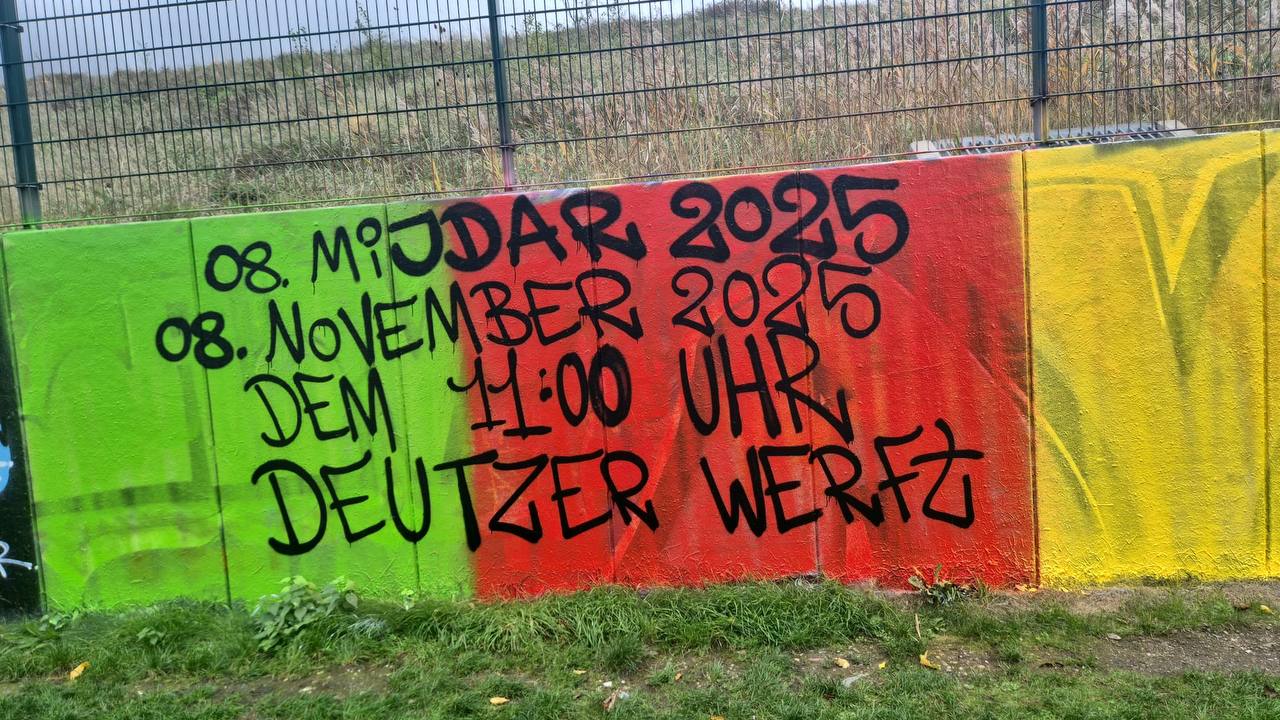 08. MiJDAR 2025
08. NOVEMBER 2025
DEM 11:00 UHR
DEUTZER WERFt